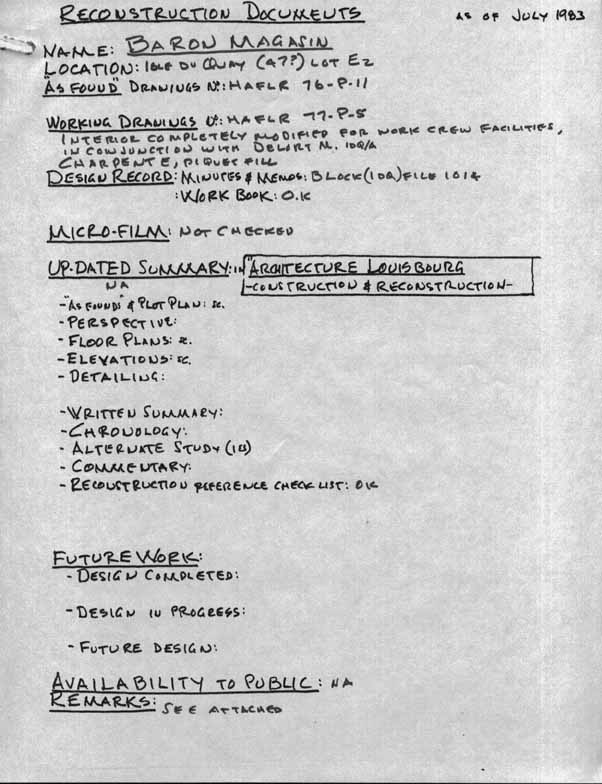 RECONSTRUCTION DOCUMENTS AS OF JULY 1983
NAME: BARON MAGASIN
LOCATION: ISLE DU QUAY (47?) LOT E2
"AS FOUND" DRAWINGS Nº: HAFLR 76-P-11
WORKING DRAWINGS Nº: HAFLR 77-P-5
INTERIOR COMPLETELY MODIFIED FOR WORK CREW FACILITIES,
IN CONJUNCTION WITH DELORT M. IDQ/A
CHARPENTE, PIQUET FILL
DESIGN RECORD: MINUTES & MEMOS: BLOCK (IDQ) FILE 1014
: WORK BOOK: O.K
MICRO-FILM: NOT CHECKED
UP-DATED SUMMARY: IN "ARCHITECTURE LOUISBOURG
-CONSTRUCTION & RECONSTRUCTION-
NA
- "AS FOUNDS" & PLOT PLAN:
- PERSPECTIVE:
- FLOOR PLANS:
- ELEVATIONS:
- DETAILING:
- WRITTEN SUMMARY:
- CHRONOLOGY:
- ALTERNATE STUDY
- COMMENTARY:
- RECONSTRUCTION REFERENCE CHECK LIST: OK
FUTURE WORK:
- DESIGN COMPLETED:
- DESIGN IN PROGRESS:
- FUTURE DESIGN:
AVAILABILITY TO PUBLIC: NA
REMARKS: SEE ATTACHED